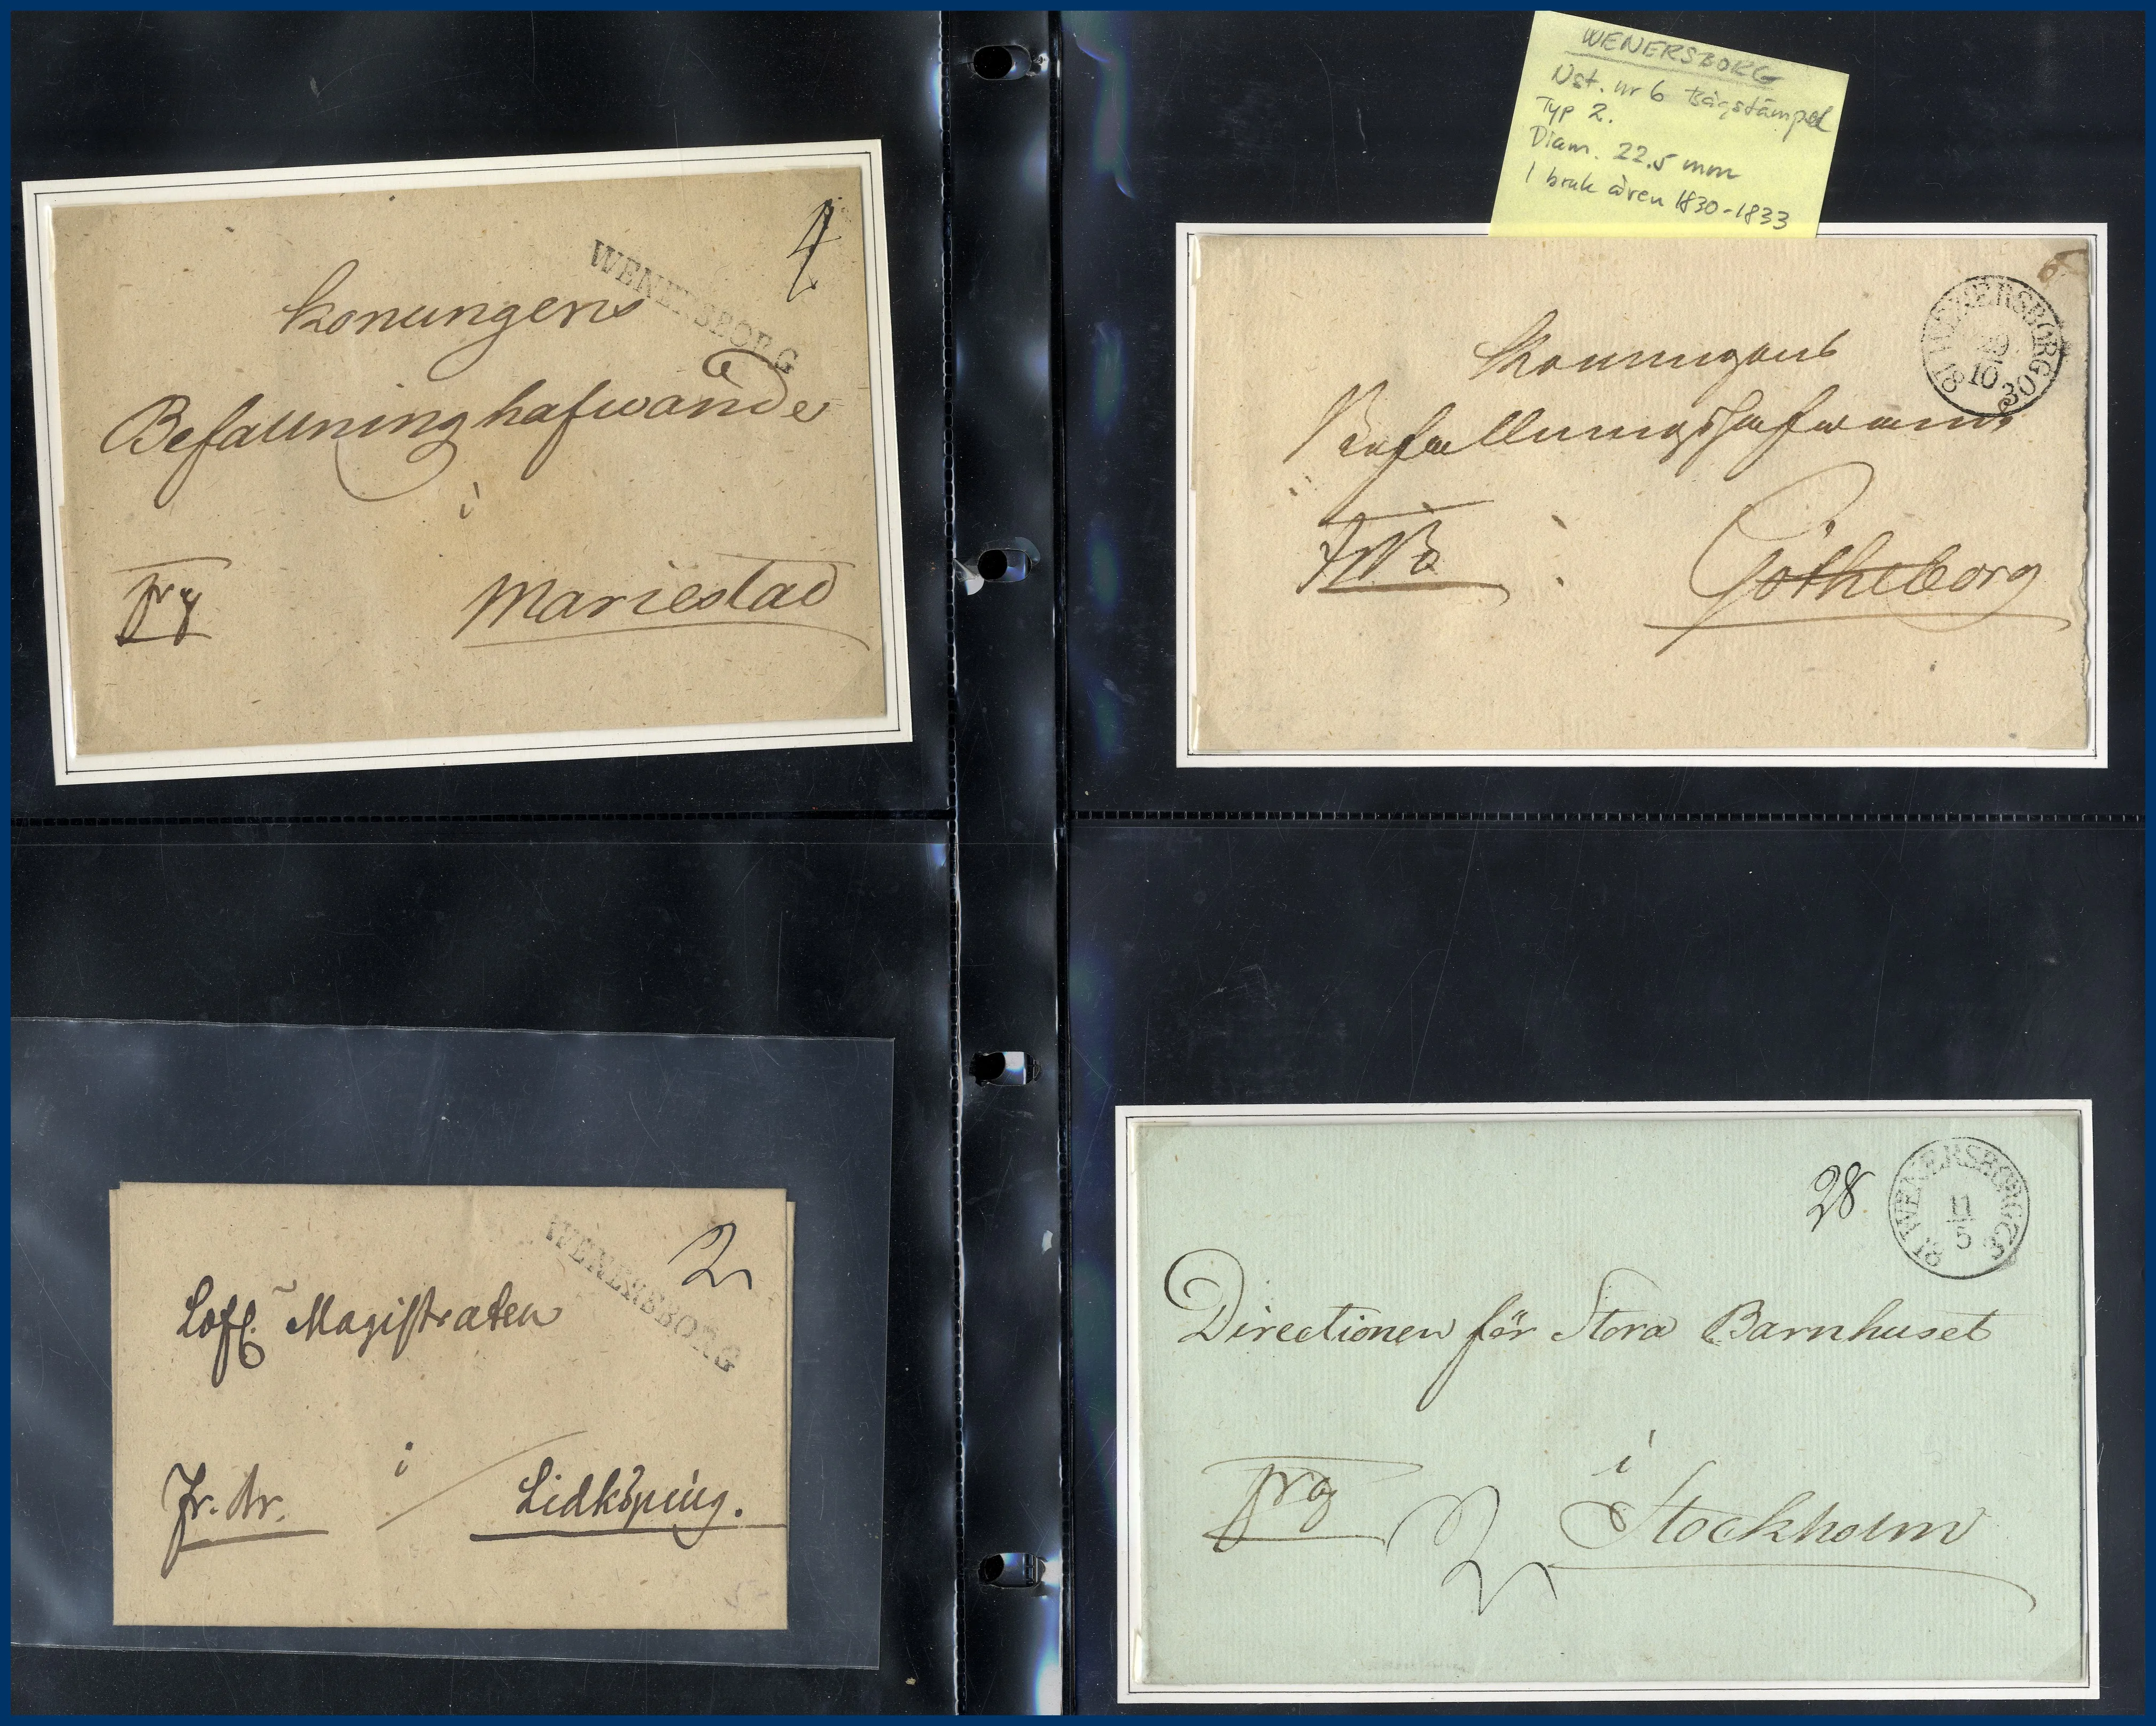 WENERSBORG
4
Konungens
Befallninghafwande
i
frq
Mariestad
WENERSBORG
Nst. nr 6 bågstämpel
Typ 2.
Diam. 22.5 mm
I bruk åren 1830-1833
18 WENERSBORG 30
29
10
Konungens
Befallningshafwand
i
Götheborg
WENERSBORG
2
Lofl. Magistraten
i
Fr. Br.
Lidköping.
28
18 WENERSBORG
11
5
Directionen för Stora Barnhuset
i
frq
Stockholm